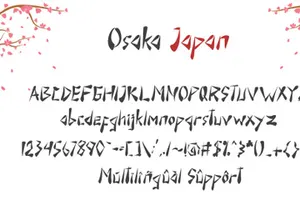 Osaka Japan
ABCDEFGHIJKLMNOPQRSTUVWXYZ
abcdefghijklmnopqrstuvwxyz
1234567890
Multilingual Support